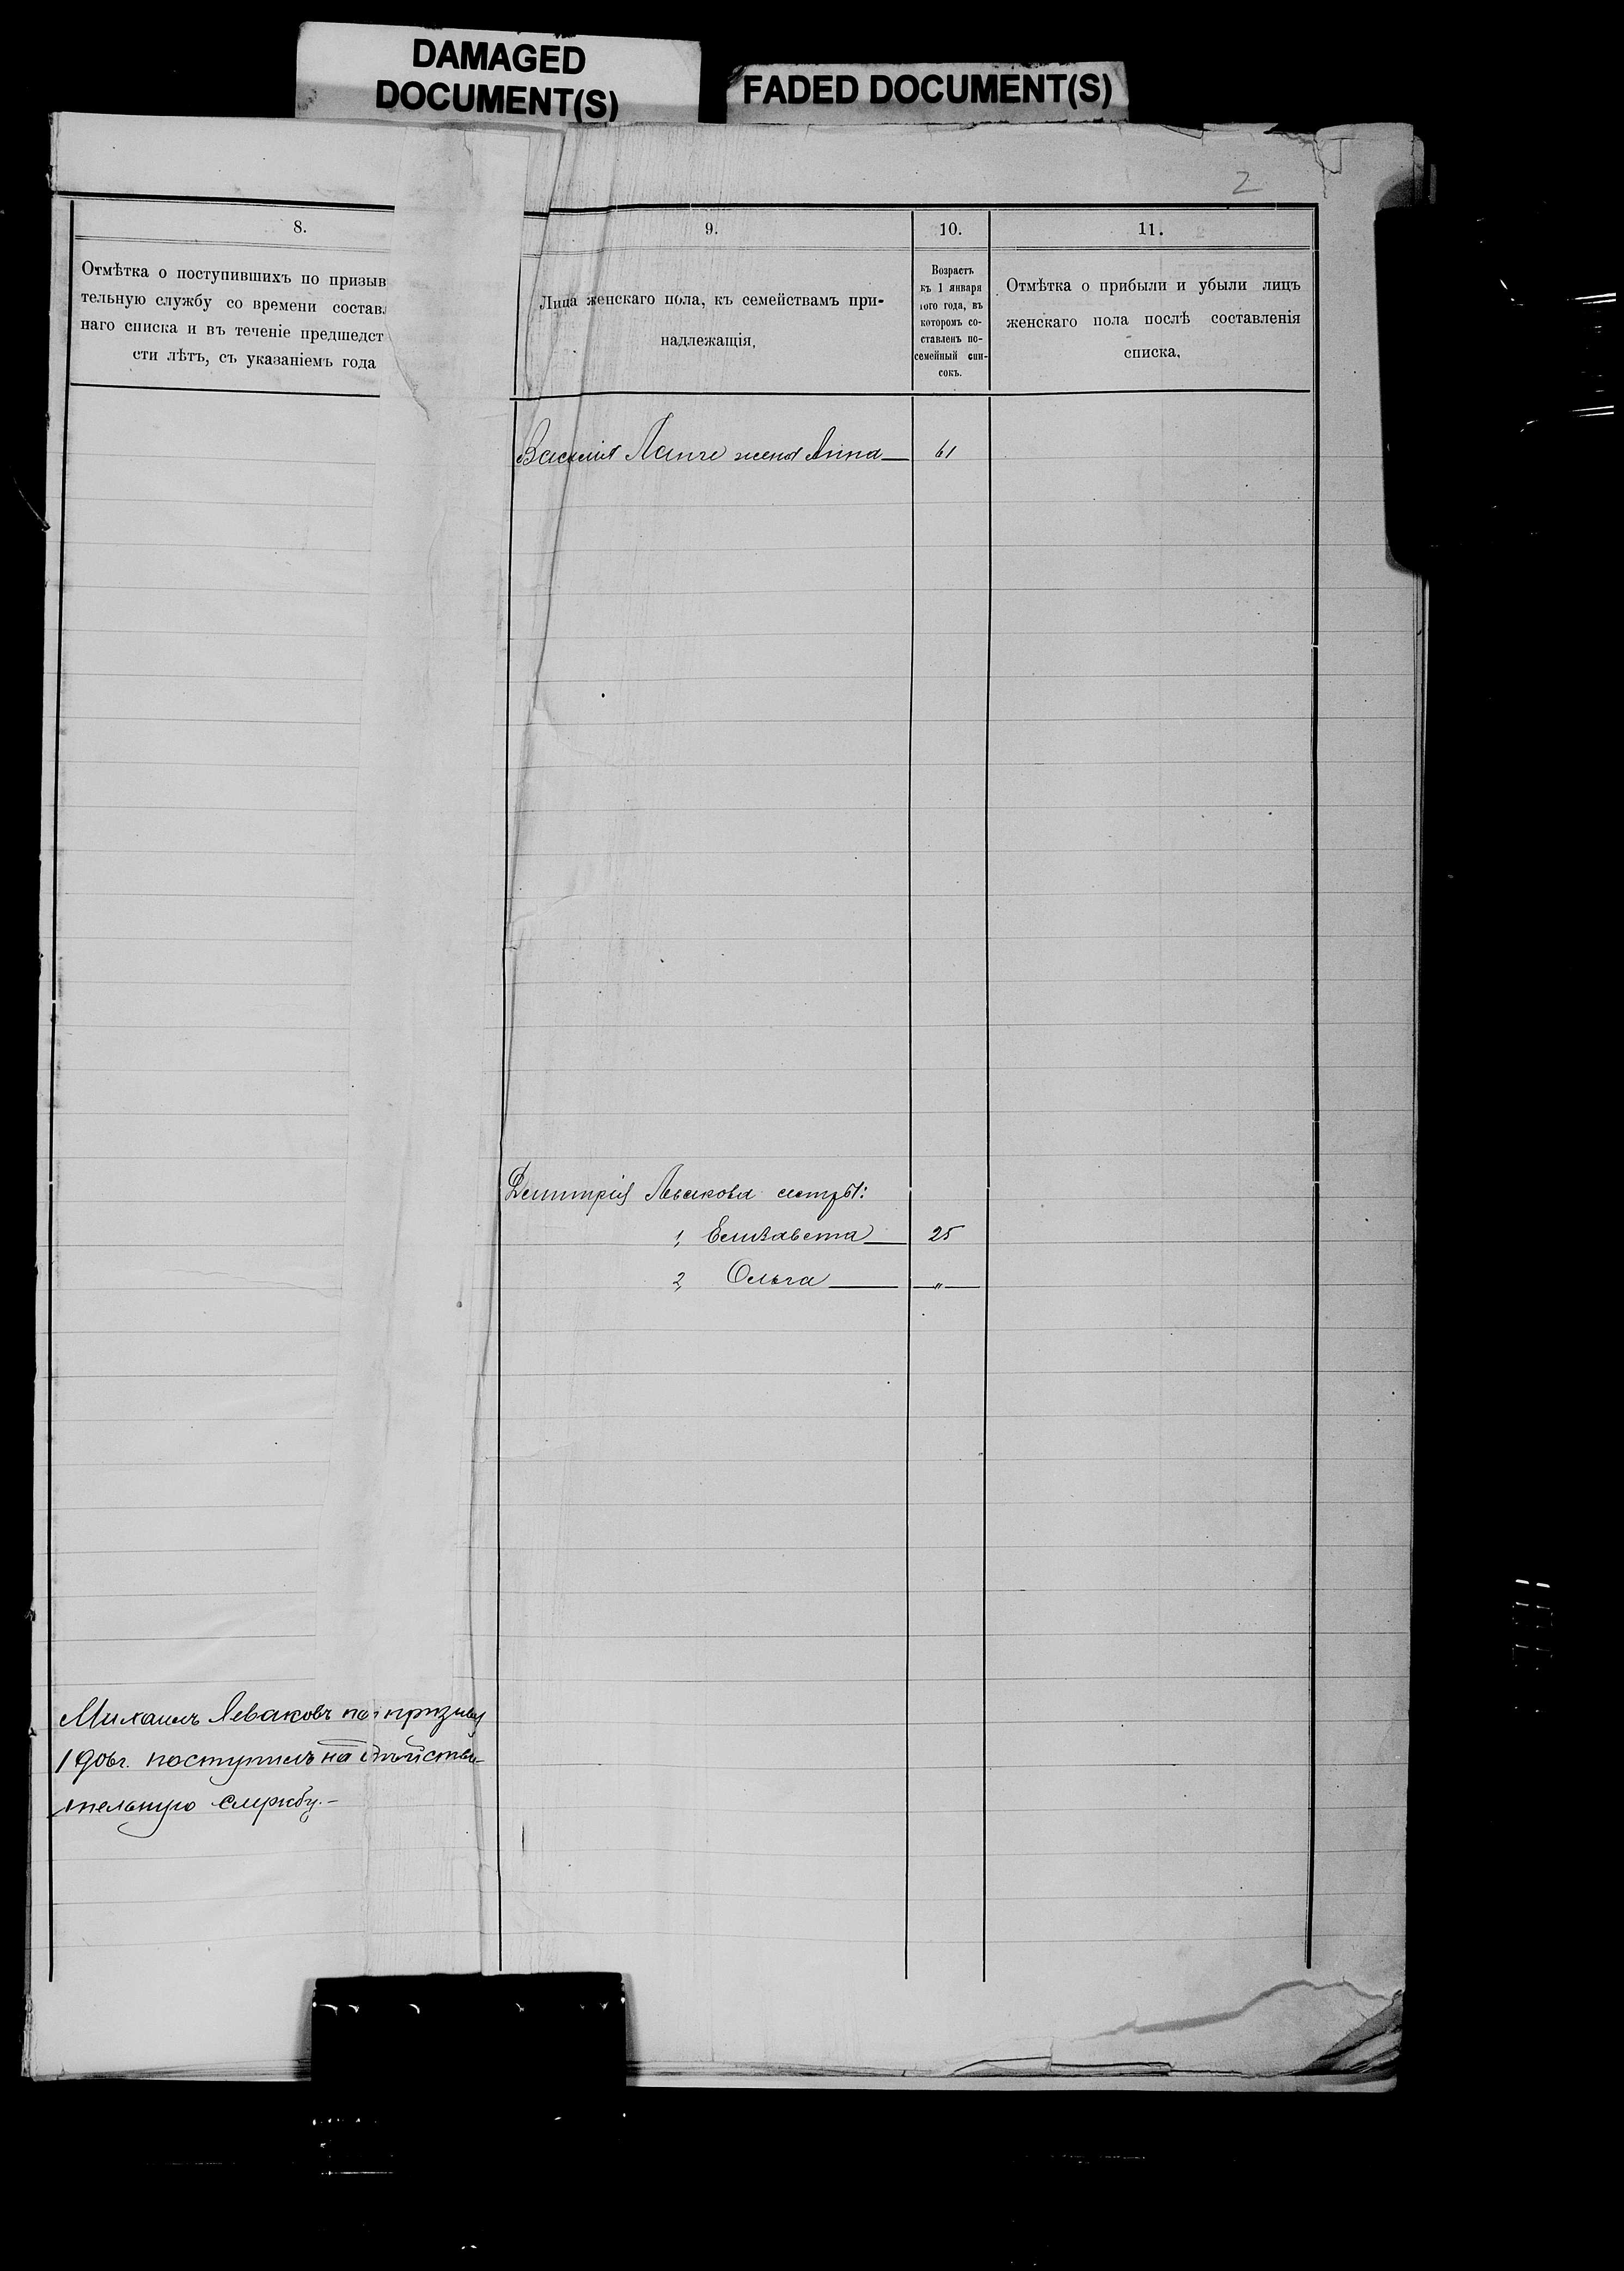 DAMAGED
DOCUMENT(S)
FADED DOCUMENT(S)
2
8.
Отмѣтка о поступившихъ по призыв
тельную службу со времени состав
наго списка и въ теченіе предшедст
сти лѣтъ, съ указаніемъ года
9.
Лица женскаго пола, къ семействамъ при-
надлежащія.
10.
Возрастъ
къ 1 января
того года, въ
которомъ со-
ставленъ по-
семейный спи-
сокъ.
11.
Отмѣтка о прибыли и убыли лицъ
женскаго пола послѣ составленія
списка.
Василія Ланге жена Анна 61
Дмитрія Левакова сестры:
1, Елизавета 25
2, Ольга "
Михаилъ Леваковъ по призыву
1906г. поступилъ на дѣйстви-
тельную службу.-